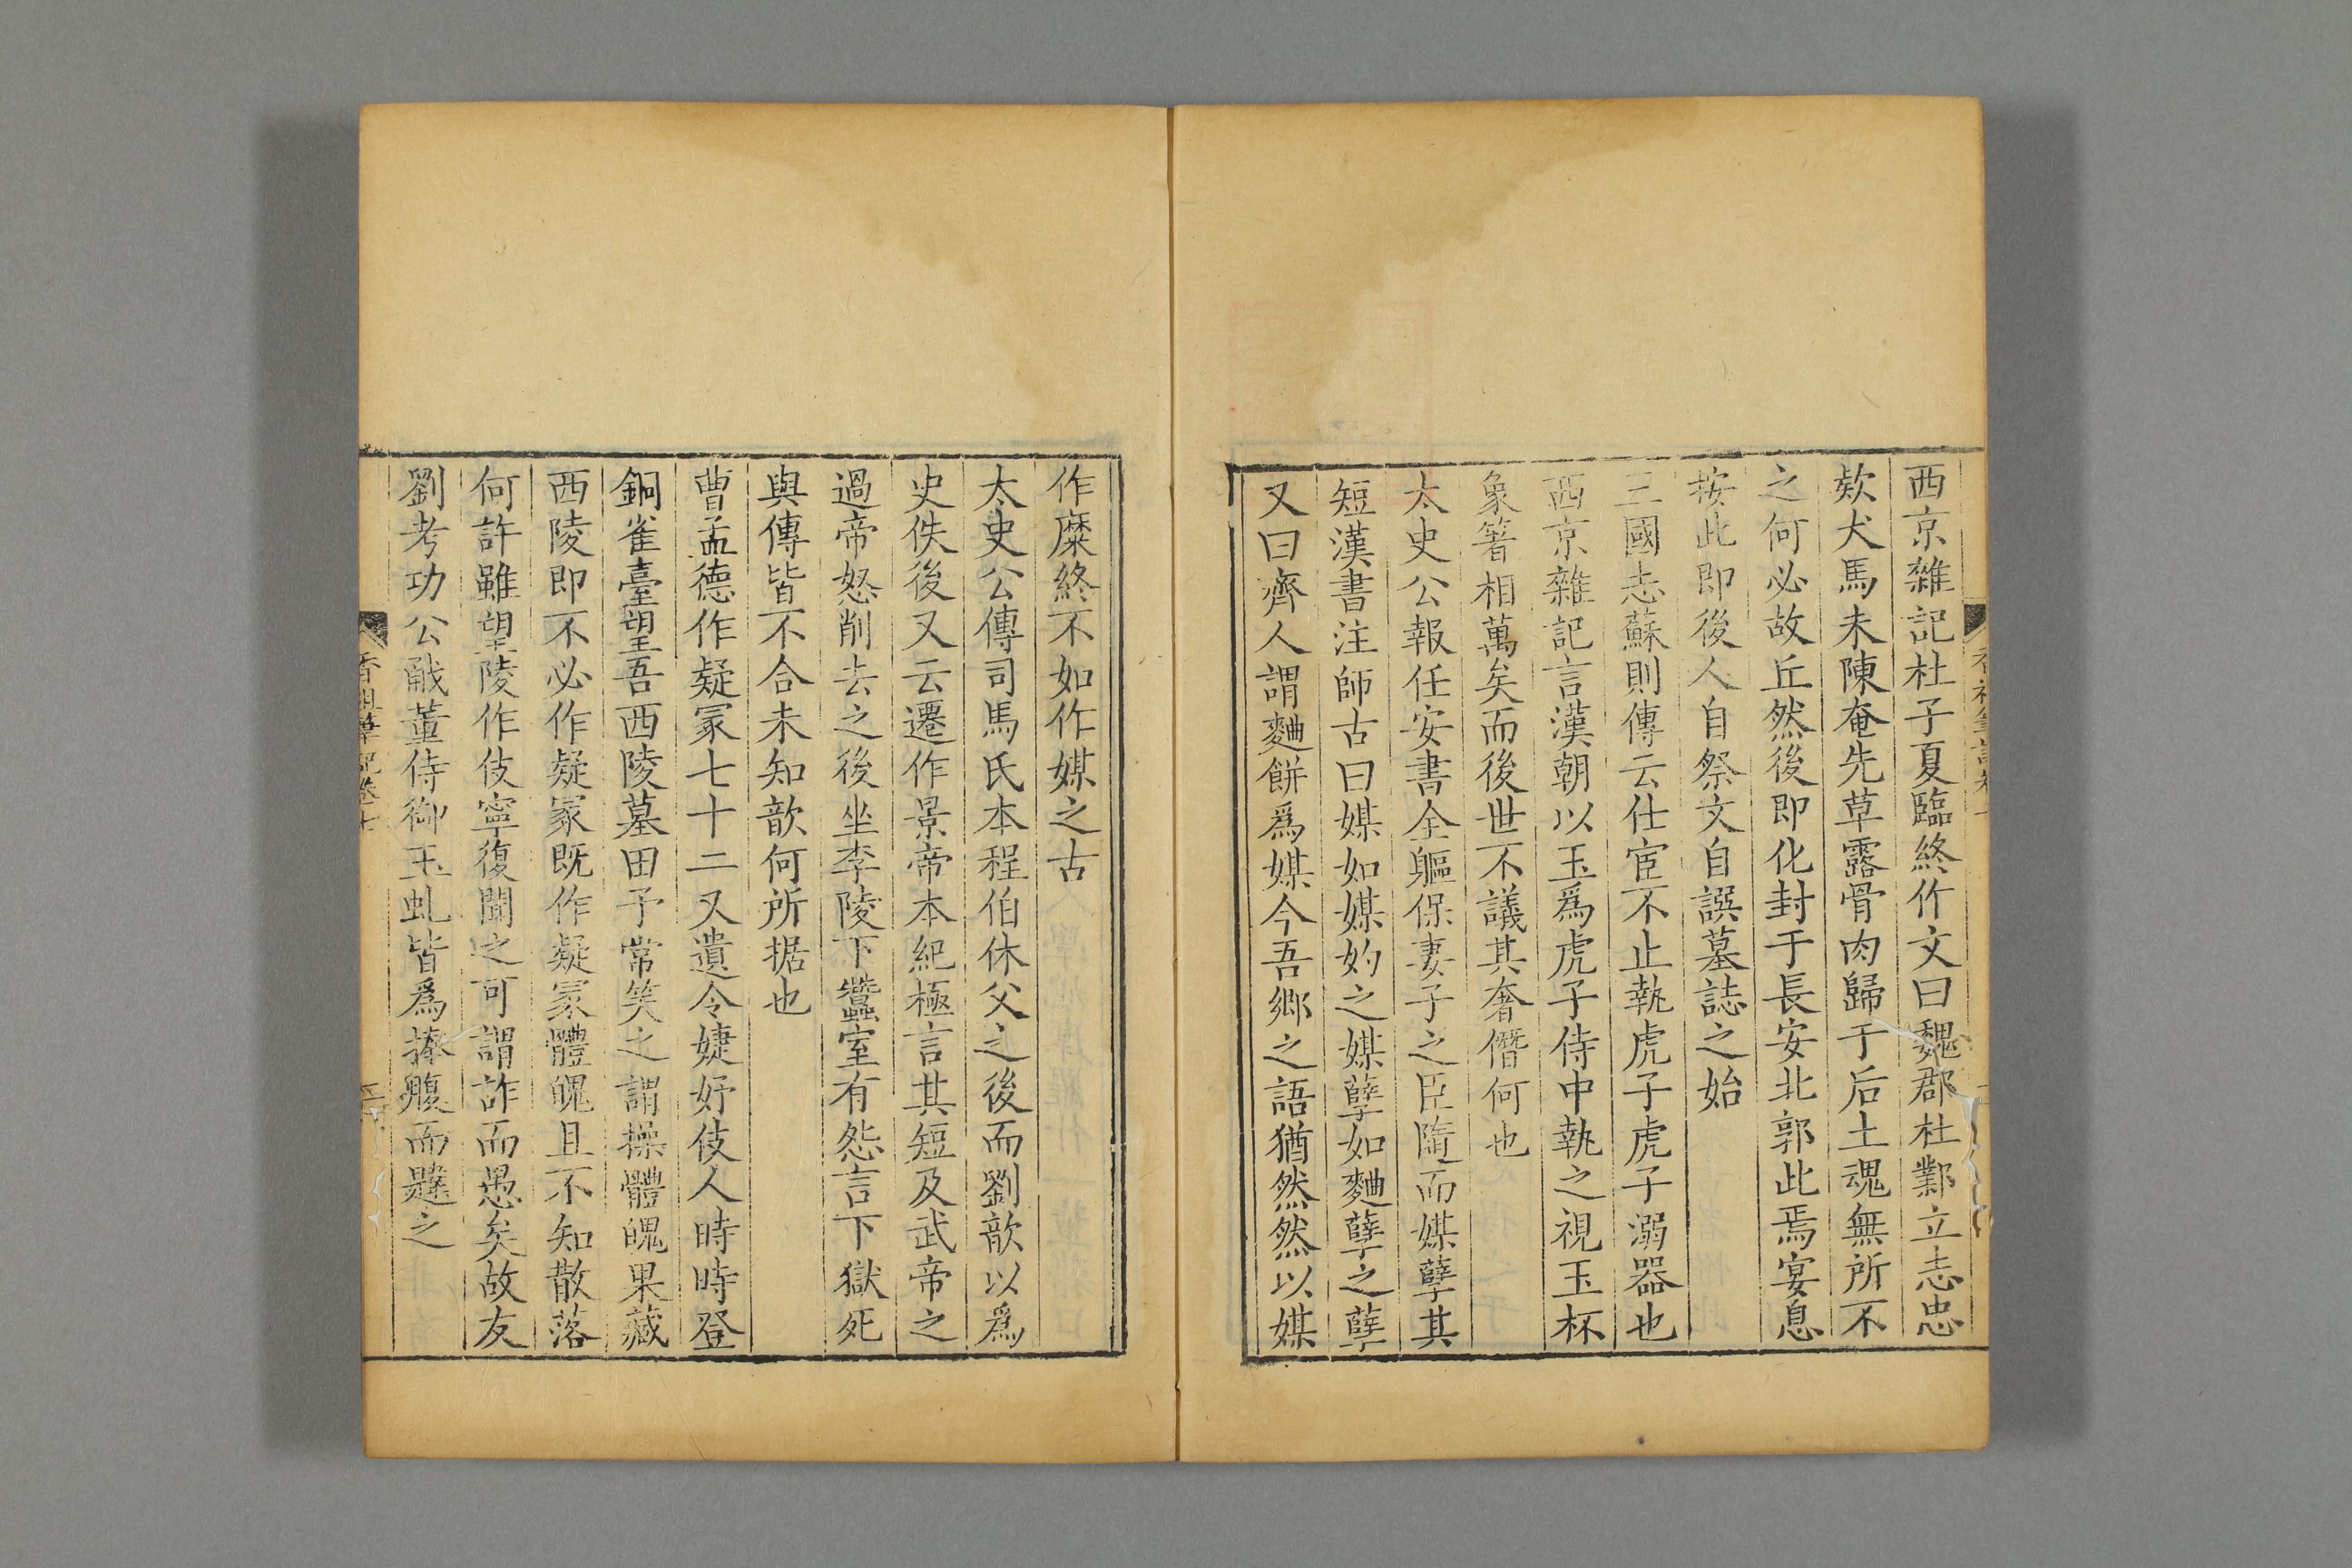 西京雜記杜子夏臨終作文曰魏郡杜鄴立志忠
欵犬馬未陳奄先草露骨肉歸于后土魂無所不
之何必故丘然後即化封于長安北郭此焉宴息
按此即後人自祭文自譔墓誌之始
三國志蘇則傳云仕宦不止執虎子虎子溺器也
西京雜記言漢朝以玉爲虎子侍中執之視玉杯
象箸相萬矣而後世不議其奢僭何也
太史公報任安書全軀保妻子之臣隨而媒孽其
短漢書注師古曰媒如媒妁之媒孽如麯孽之孽
又曰齊人謂麯餅爲媒今吾鄉之語猶然然以媒
作糜終不如作媒之古
太史公傳司馬氏本程伯休父之後而劉歆以爲
史佚後又云遷作景帝本紀極言其短及武帝之
過帝怒削去之後坐李陵下蠶室有怨言下獄死
與傳皆不合未知歆何所据也
曹孟德作疑冢七十二又遺令婕妤伎人時時登
銅雀臺望吾西陵墓田予常笑之謂操體魄果藏
西陵即不必作疑冢既作疑冢體魄且不知散落
何許雖望陵作伎寧復聞之可謂詐而愚矣故友
劉考功公㦷董侍御玉虬皆爲捧腹而韙之
香祖筆記卷十